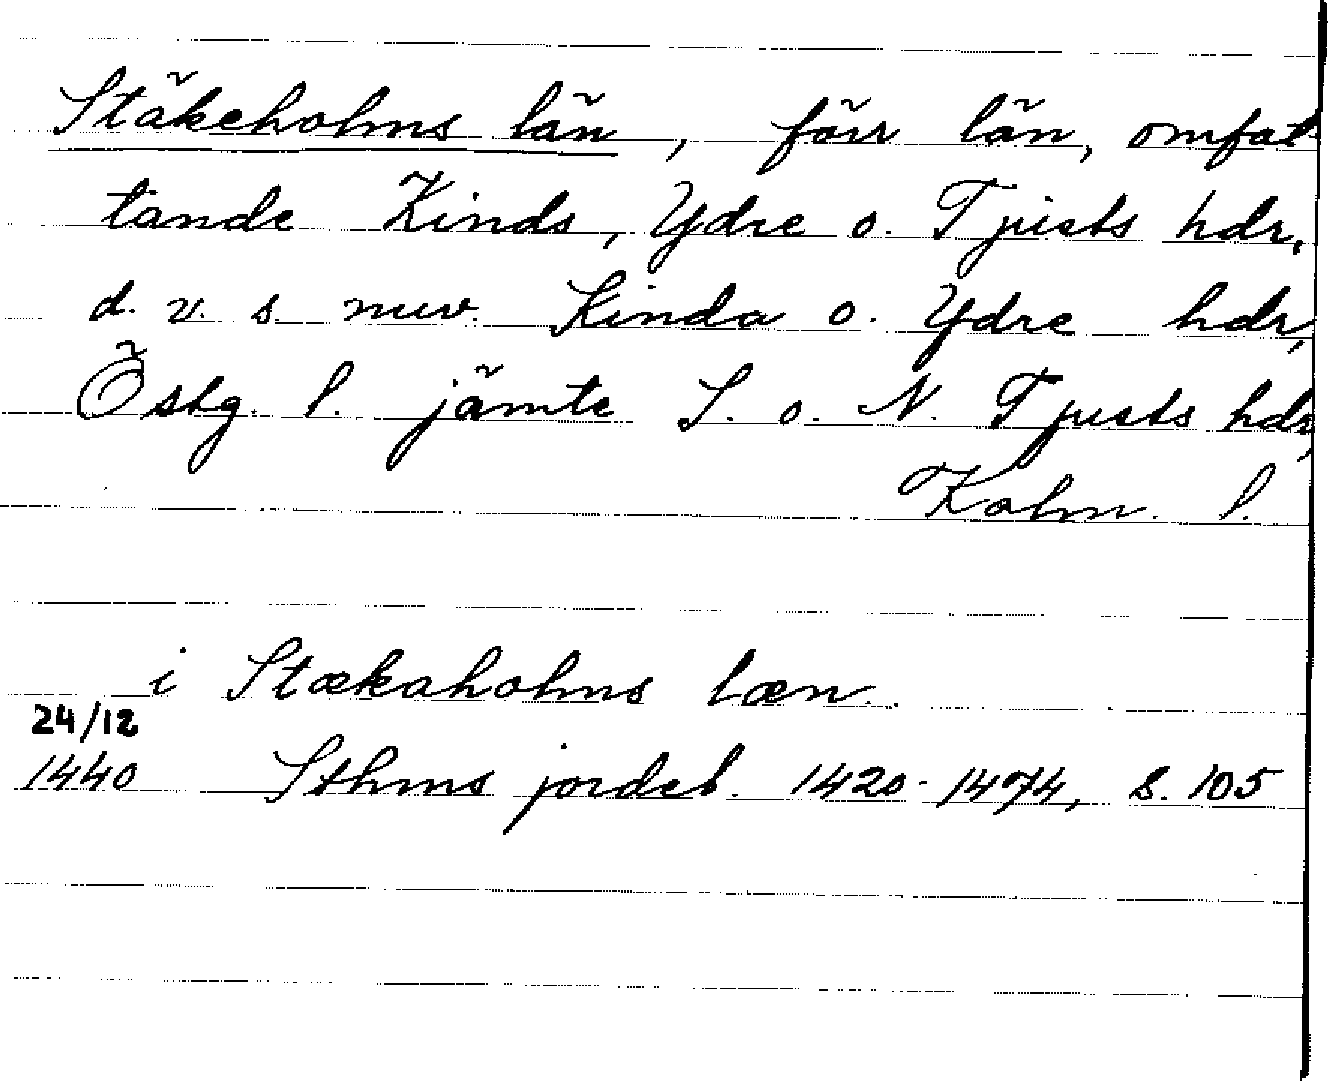 Stäkeholms län, förr län, omfat-
tande Kinds, Ydre o. Tjusts hdr,
d. v. s. nuv. Kinda o. Ydre hdr,
Östg. l. jämte S. o. N. Tjusts hdr,
Kalm. l.
i Stækaholms læn.
24/12
1440 Sthms jordeb. 1420-1474, s. 105